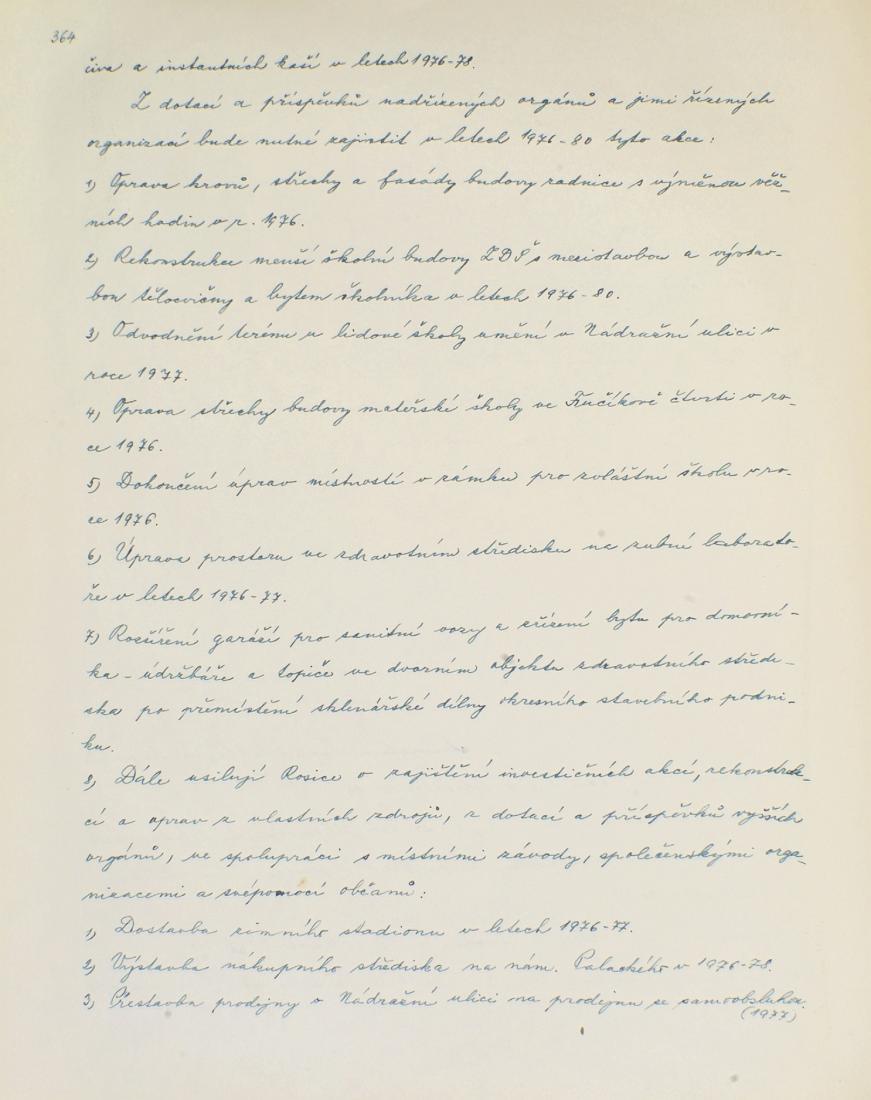 364
čiva a instantních kaší v letech 1976-78.
Z dotací a příspěvků nadřízených orgánů a jimi řízených
organizací bude nutné zajistit v letech 1976-80 tyto akce:
1) Oprava krovů, střechy a fasády budovy radnice s výměnou věž-
ních hodin v r. 1976.
2) Rekonstrukce menší školní budovy ZDŠ s mezistavbou a výstav-
bou tělocvičny a bytem školníka v letech 1976-80.
3) Odvodnění terénu u lidové školy umění v Nádražní ulici v
roce 1977.
4) Oprava střechy budovy mateřské školy ve Fučíkově čtvrti v ro-
ce 1976.
5) Dokončení úprav místností v zámku pro zvláštní školu v ro-
ce 1976.
6) Úprava prostoru ve zdravotním středisku na zubní laborato-
ře v letech 1976-77.
7) Rozšíření garáží pro sanitní vozy a zřízení bytu pro domovní-
ka - údržbáře a topiče ve dvorním objektu zdravotního středi-
ska po přemístění sklenářské dílny okresního stavebního podni-
ku.
8) Dále usilují Rosice o zajištění investičních akcí, rekonstruk-
cí a oprav z vlastních zdrojů, z dotací a příspěvků vyšších
orgánů, ve spolupráci s místními závody, společenskými orga-
nizacemi a svépomocí občanů:
1) Dostavba zimního stadionu v letech 1976-77.
2) Výstavba nákupního střediska na nám. Palackého v 1976-78.
3) Přestavba prodejny v Nádražní ulici na prodejnu se samoobsluhou.
(1977)